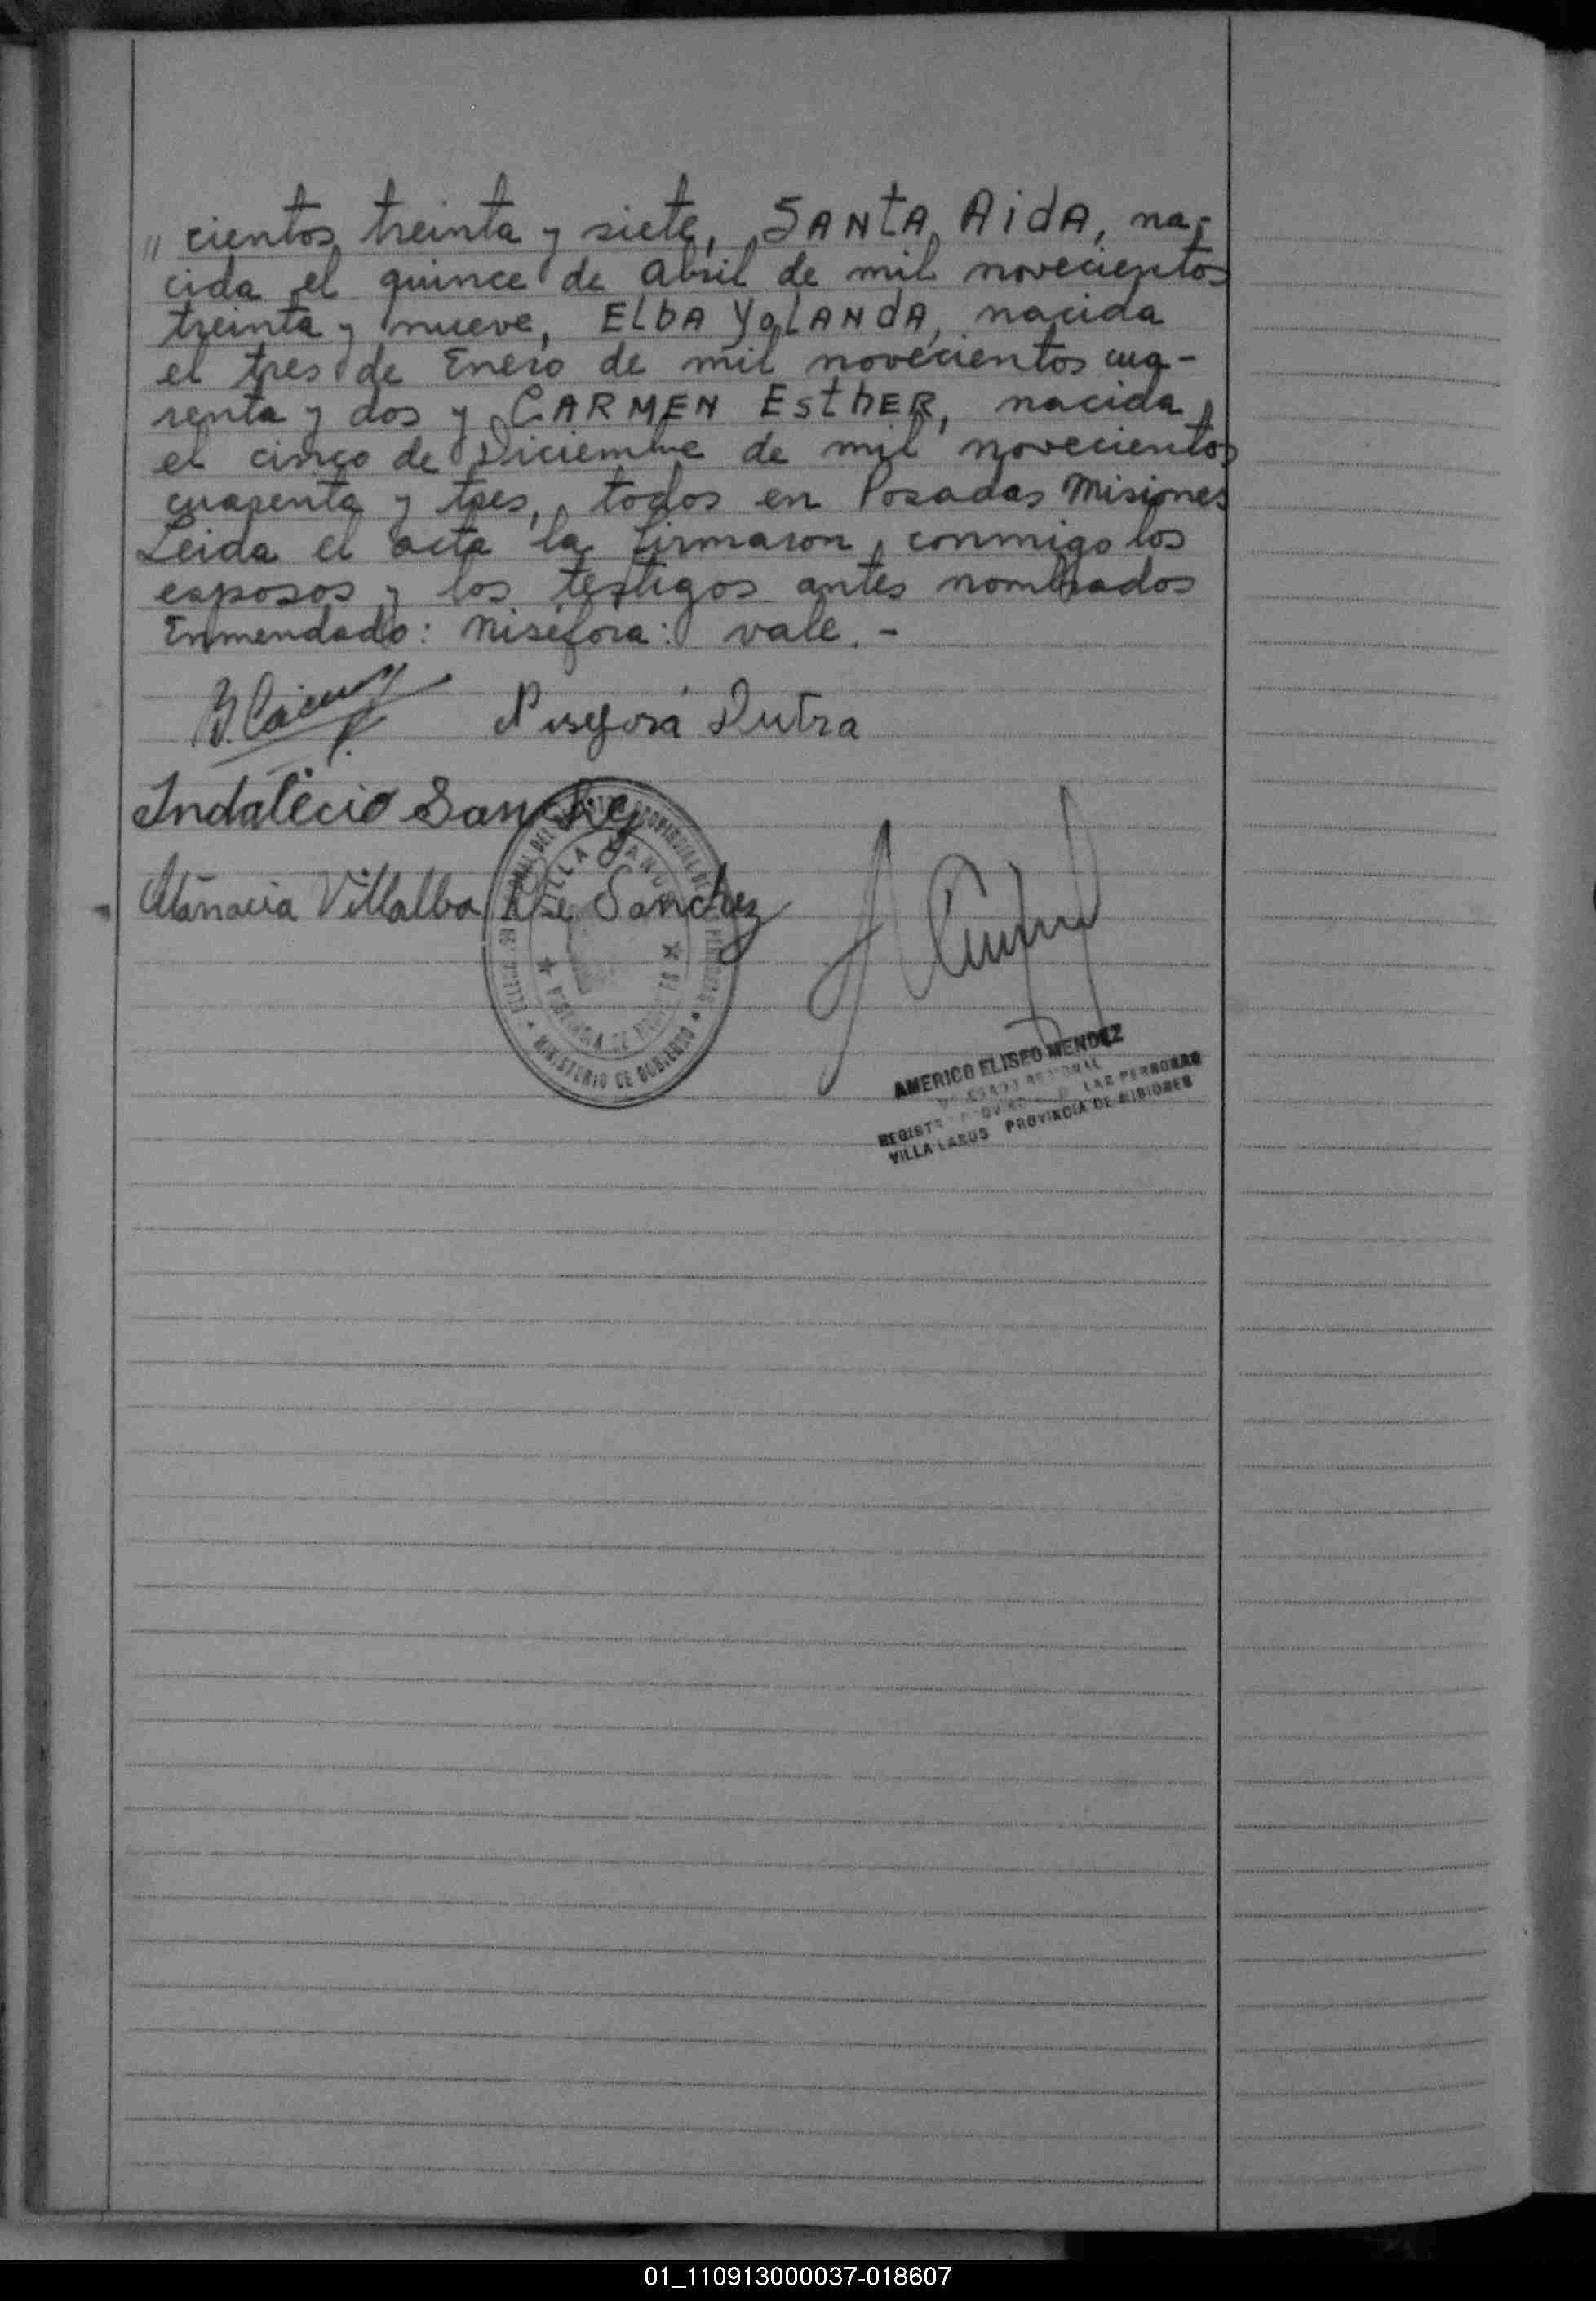 " cientos treinta y siete, SANtA AidA, na-
cida el quince de Abril de mil novecientos
treinta y nueve, ELbA YoLANdA, nacida
el tres de Enero de mil novecientos cua-
renta y dos y CARMEN EsthER, nacida
el cinco de Diciembre de mil novecientos
cuarenta y tres, todos en Posadas Misiones
Leida el acta la firmaron, conmigo los
esposos y los testigos antes nombrados
Enmendado: Niséfora: vale. -
Niséfora Dutra
Indalecio Sanchez
Atanacia Villalba de Sanchez
VILLA LANUS
MINISTERIO DE GOBIERNO
AMERICO ELISEO MENDEZ
LAS PERSONAS
VILLA LANUS PROVINCIA DE MISIONES
01_110913000037-018607